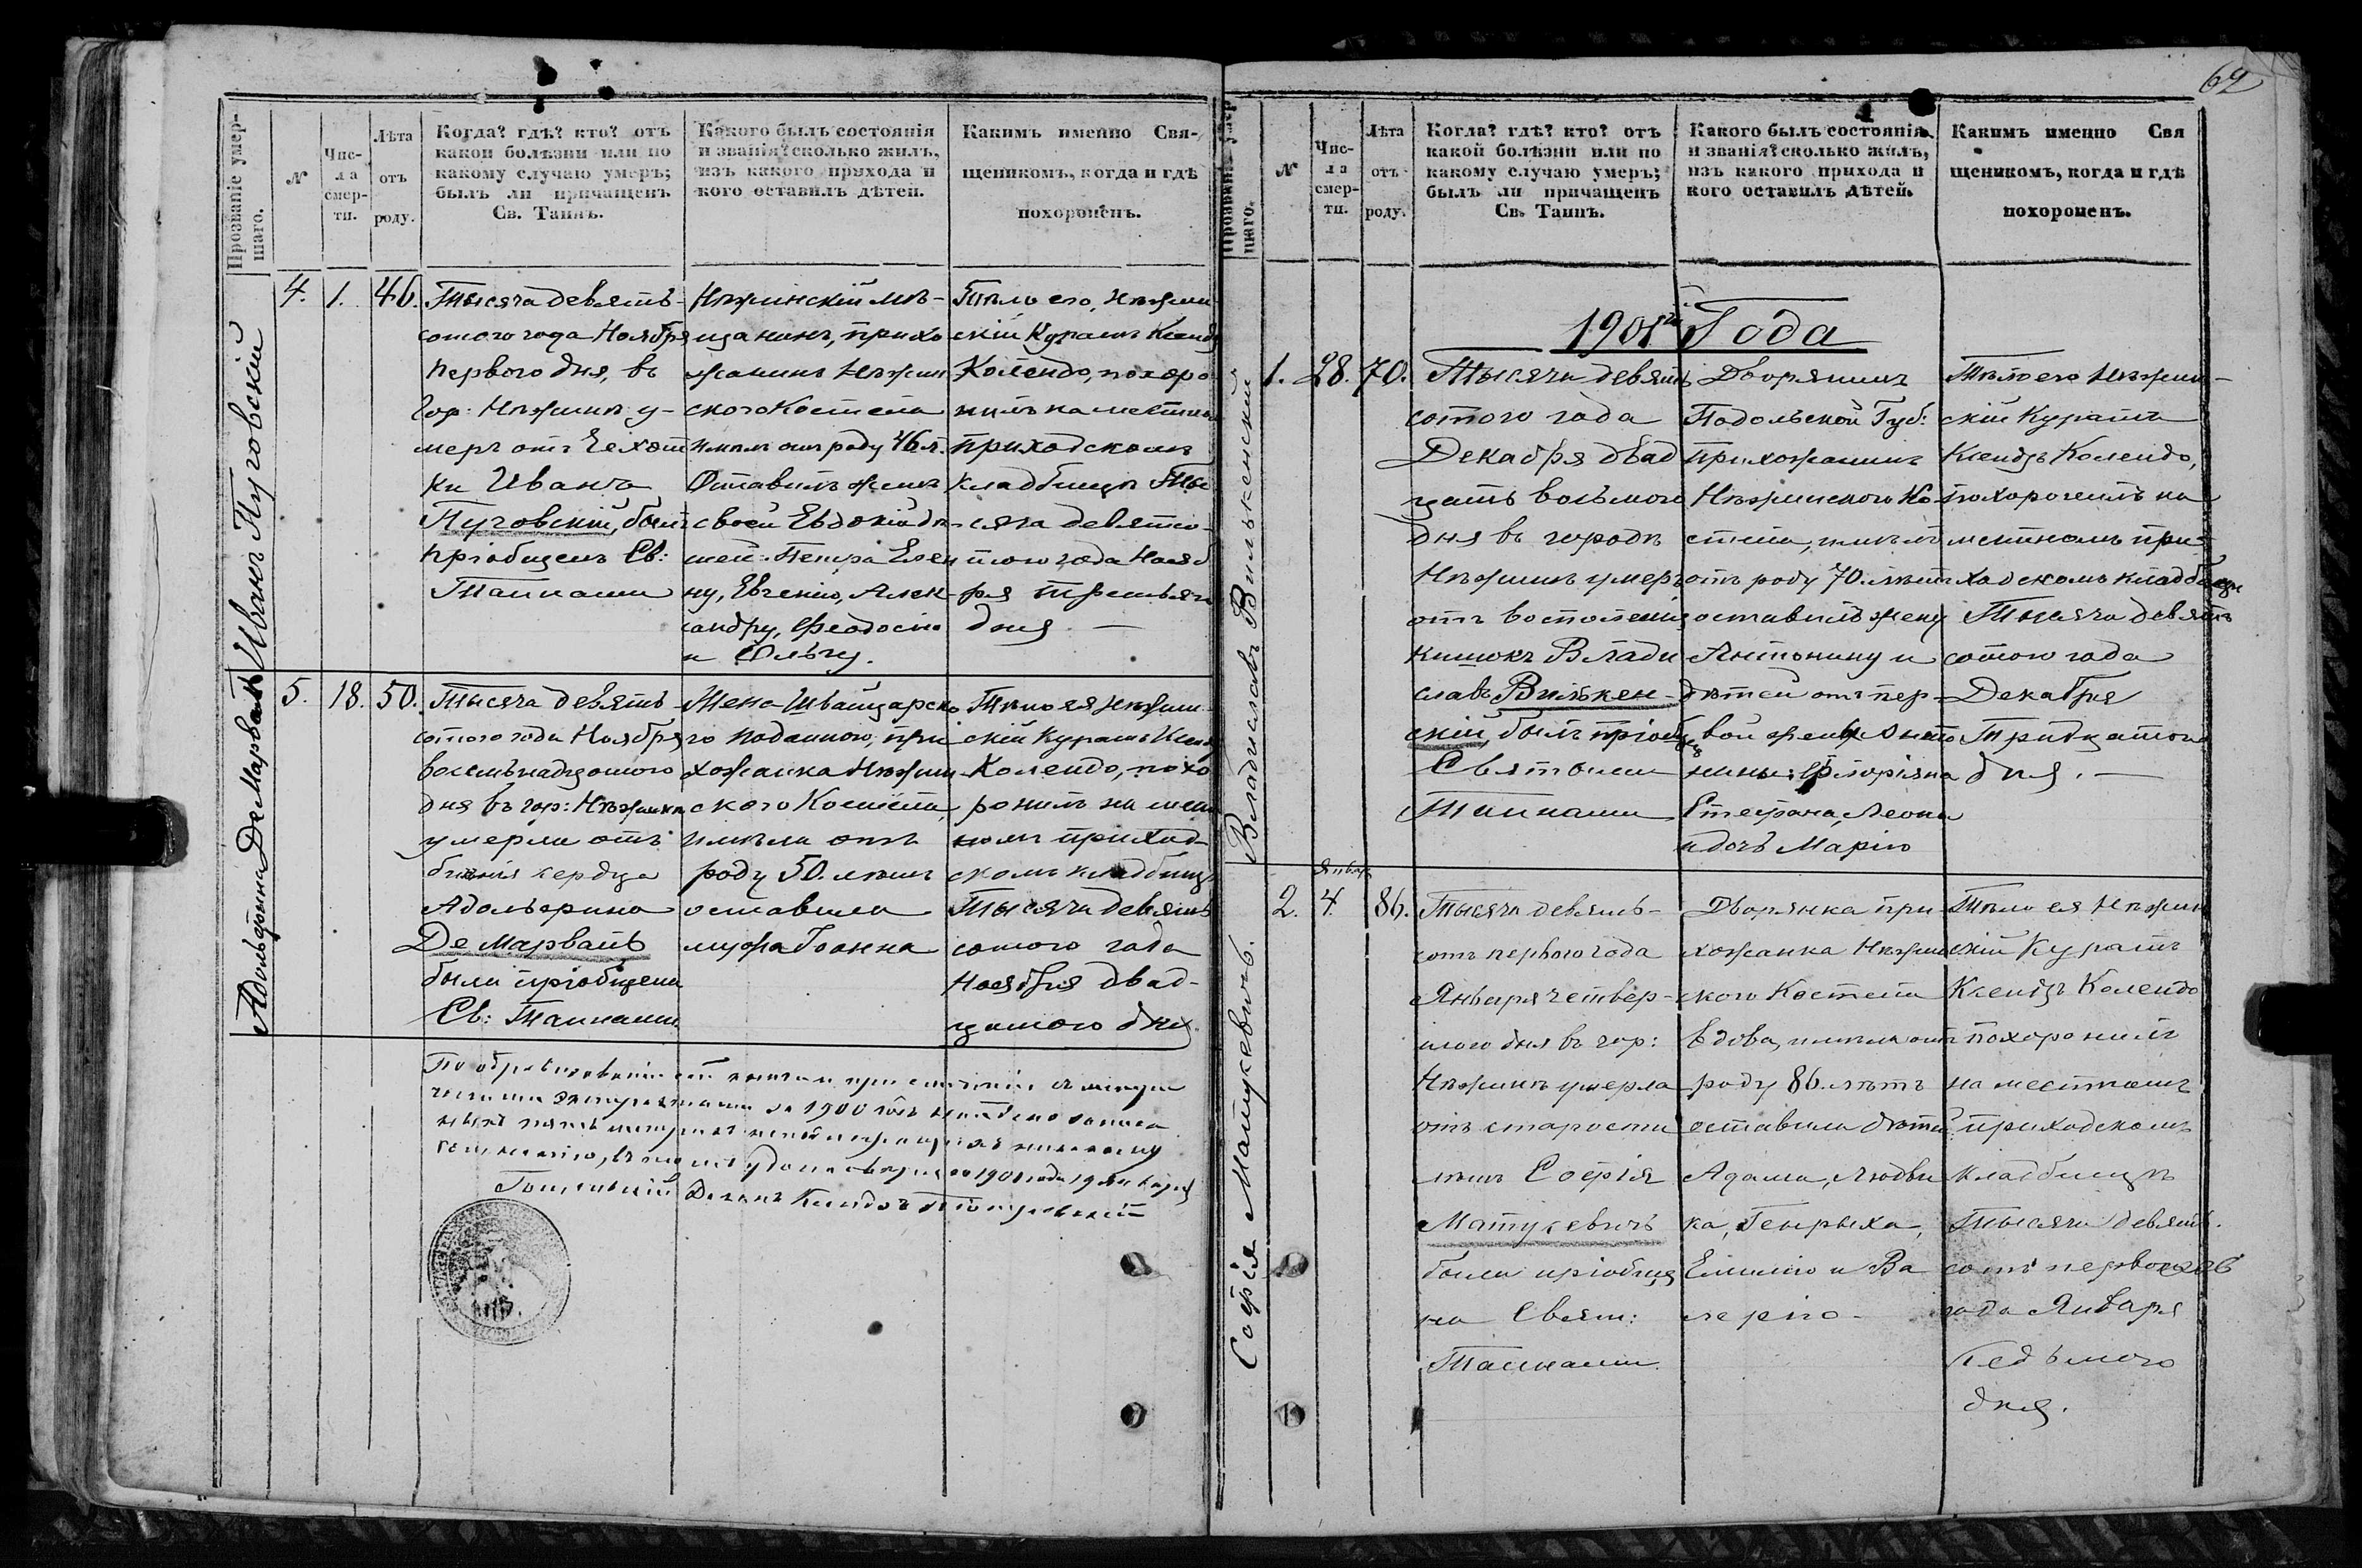 Прозваніе умер-
шаго.
№
Чис-
ла
смер-
ти.
Лѣта
отъ
роду.
Когда? гдѣ? кто? отъ
какой болѣзни или по
какому случаю умеръ;
былъ ли причащенъ
Св. Таинъ.
Какого былъ состоянія
и званія? сколько жилъ,
изъ какого прихода и
кого оставилъ дѣтей.
Какимъ именно Свя-
щеникомъ, когда и гдѣ
похороненъ.
Иванъ Пуговскій
4.
1.
46.
Тысяча девять-
сотого года Ноября
перваго дня, въ
гор: Нѣжинѣ у-
меръ отъ Чехот
ки Иванъ
Пуговскій, былъ
пріобщенъ Св:
Тайнами
Нѣжинскій мѣ-
щанинъ, прихо
жанинъ Нѣжин
скаго Костела
имѣлъ отъ роду 46 л.
Оставилъ жену
свою Евдокію дѣ-
тей: Петра Елен
ну, Евгенію, Алек-
сандру, Феодосію
и Ольгу.
Тѣло его, Нѣжин
скій Куратъ Ксендзъ
Колендо, похоро
нилъ на местномъ
приходскомъ
кладбищѣ Ты
сяча девятьсо-
таго года Нояб
ря третьяго
дня —
Адольфина Де Марваль
5.
18.
50.
Тысяча девять-
сотого года Ноября
восемьнадцатого
дня въ гор: Нѣжинѣ
умерла отъ
біенія сердца
Адольфина
Де Марваль
была пріобщена
Св: Тайнами
Жена Швайцарско
го подданного, при
хожанка Нѣжин
ского Костела,
имѣла отъ
роду 50. лѣтъ
оставила
мужа Іоанна
Тѣло ея Нѣжин-
скій Куратъ Ксендзъ
Колендо, похо
ронилъ на мест
номъ приход-
скомъ кладбищѣ
Тысяча девять
сотого года
Ноября двад-
цатого дня.
1900
1901 года 19 Января
Деканъ Ксендзъ
62
Прозваніе умер
шаго.
№
Чис-
ла
смер-
ти.
Лѣта
отъ
роду.
Когда? гдѣ? кто? отъ
какой болѣзни или по
какому случаю умеръ;
былъ ли причащенъ
Св. Таинъ.
Какого былъ состоянія
и званія? сколько жилъ,
изъ какого прихода и
кого оставилъ дѣтей.
Какимъ именно Свя
щеникомъ, когда и гдѣ
похороненъ.
1901го Года
Владиславъ Вилькенскій
1.
28.
70.
Тысяча девять
сотого года
Декабря двад
цать восьмого
дня въ городѣ
Нѣжинѣ умеръ
отъ воспаленія
кишокъ Влади
славъ Вилькен-
скій, былъ пріобщ
Святыми
Тайнами
Дворянинъ
Подольской Губ:
прихожанинъ
Нѣжинскаго Ко
стела, имѣлъ
отъ роду 70. лѣтъ
оставилъ жену
Антонину и
дѣтей отъ пер-
вой жены Анто
нины: Флоріана
Стефана, Леона
и дочъ Марію
Тѣло его Нѣжин-
скій Куратъ
Ксендзъ Колендо,
похоронилъ на
местномъ при
ходскомъ кладбищѣ
Тысяча девять
сотого года
Декабря
Тридцатого
дня. —
Софія Матукевичъ.
2.
Январ
4.
86.
Тысяча девять-
сотъ перваго года
Января четвер-
таго дня въ гор:
Нѣжинѣ умерла
отъ старости
лѣтъ Софія
Матукевичъ
была пріобще
на Свят:
Тайнами.
Дворянка при
хожанка Нѣжин
ского Костела
вдова, имѣла отъ
роду 86. лѣтъ
оставила дѣтей:
Адама, Людви
ка, Генрыха,
Емилію и Ва
лерію-
Тѣло ея Нѣжин
скій Куратъ
Ксендзъ Колендо
похоронилъ
на местномъ
приходскомъ
кладбищѣ
Тысяча девять.
сотъ перваго
года Января
Седьмого
дня.